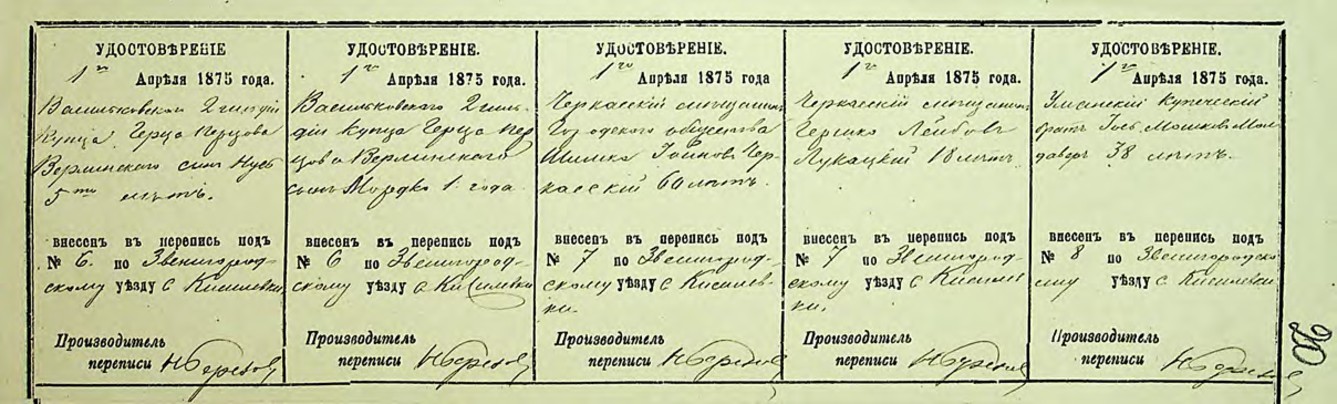 УДОСТОВѢРЕНІЕ
1го Апрѣля 1875 года.
Васильковскаго 2 гильдіи
Купца Герца Герцова
Верлинскаго сынъ
5ти лѣтъ.
внесенъ въ перепись подъ
№ 6. по Звенигород-
скому уѣзду с Киселевки
Производитель
переписи
УДОСТОВѢРЕНІЕ.
1го Апрѣля 1875 года.
Васильковскаго 2 гиль-
діи Купца Герца Гер
цова Верлинскаго
сынъ Мордко 1. года.
внесенъ въ перепись подъ
№ 6 по Звенигород-
скому уѣзду с Киселевки
Производитель
переписи
УДОСТОВѢРЕНІЕ.
1го Апрѣля 1875 года
Черкасскій мѣщанинъ
Городскаго общества
Шимка Чер-
касскій 60 лѣтъ.
внесенъ въ перепись подъ
№ 7 по Звенигород-
скому уѣзду с Киселев-
ки.
Производитель
переписи
УДОСТОВѢРЕНІЕ.
1го Апрѣля 1875 года.
Черкасскій мѣщанинъ
Гершко Лейбовъ
Лукацкій 18 лѣтъ.
внесенъ въ перепись подъ
№ 7 по Звенигород-
скому уѣзду с Киселев
ки.
Производитель
переписи
УДОСТОВѢРЕНІЕ.
1го Апрѣля 1875 года.
Уманскій Купеческій
братъ Мошковъ Мол-
даверъ 38 лѣтъ.
внесенъ въ перепись подъ
№ 8 по Звенигородско
му уѣзду с. Киселевки
Производитель
переписи